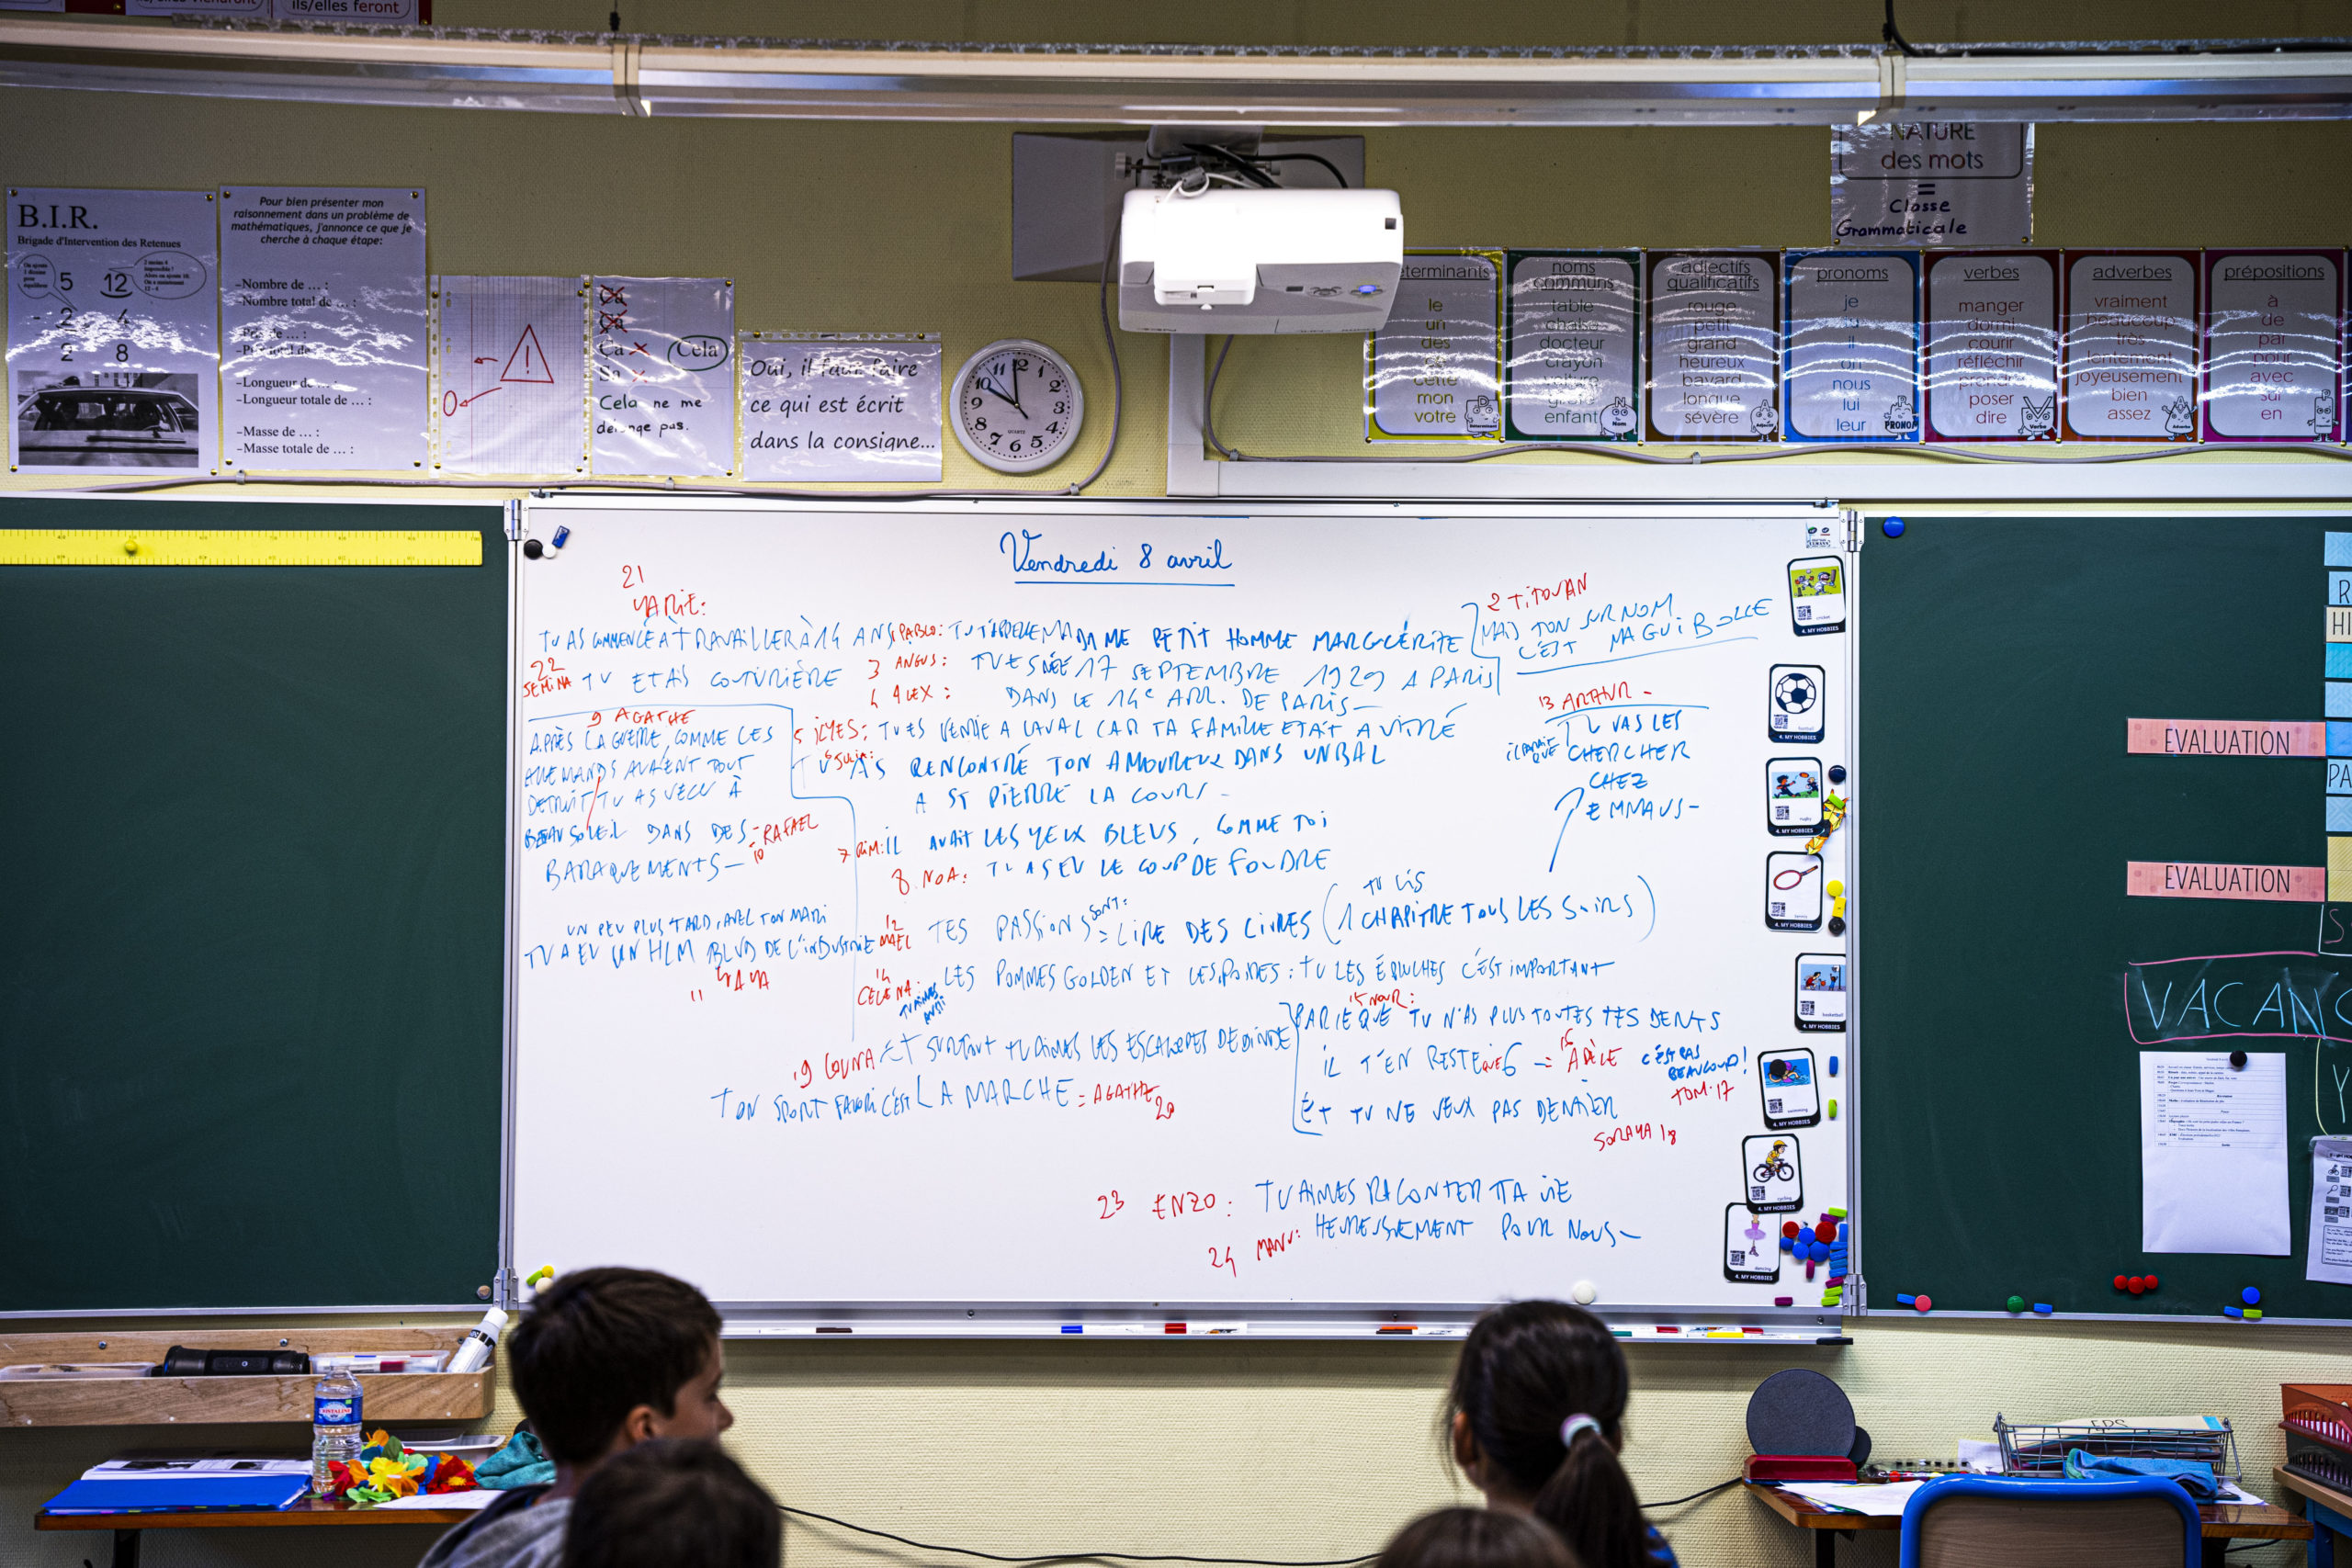 ils/elles feront
NATURE
des mots
=
Classe
Grammaticale
B.I.R.
Brigade d'Intervention des Retenues
5 12
- 2 4
2 8
Pour bien présenter mon
raisonnement dans un problème de
mathématiques, j'annonce ce que je
cherche à chaque étape:
-Nombre de ... :
-Nombre total de ... :
-Longueur de ... :
-Longueur totale de ... :
-Masse de ... :
-Masse totale de ... :
!
0
Ça Cela
Sa
Cela ne me
dérange pas.
Oui, il faut faire
ce qui est écrit
dans la consigne...
12 1 2 3 4 5 6 7 8 9 10 11
QUARTZ
déterminants
le
un
des
ce
cette
mon
votre
noms
communs
table
chaise
docteur
crayon
voiture
enfant
adjectifs
qualificatifs
rouge
petit
grand
heureux
bavard
longue
sévère
pronoms
je
il
on
nous
lui
leur
PRONOM
verbes
manger
dormi
courir
réfléchir
prendre
poser
dire
Verbe
adverbes
vraiment
beaucoup
très
lentement
joyeusement
bien
assez
prépositions
à
de
par
pour
avec
sur
en
Vendredi 8 avril
21
YARIE:
TU AS COMMENCÉ A TRAVAILLER À 14 ANS
PABLO: TU T'APPELLE MADAME PETIT HOMME MARGUÉRITE
2 TITOUAN
MAIS TON SURNOM
C'EST MAGUIBOLLE
22
SEMINA TU ETAIS COUTURIÈRE
3 ANGUS: TU ES NÉE 17 SEPTEMBRE 1929 A PARIS
4 ALEX: DANS LE 14e ARR. DE PARIS-
9 AGATHE
APRÈS LA GUERRE, COMME LES
ALLEMANDS AVAIENT TOUT
DETRUIT TU AS VÉCU À
BEAUSOLEIL DANS DES - RAFAEL
10
BARAQUEMENTS-
5 ILYES: TU ES VENUE A LAVAL CAR TA FAMILLE ETAIT A VITRÉ
6 JULIA: TU AS RENCONTRÉ TON AMOUREUX DANS UN BAL
A ST PIERRE LA COUR-
7 RIM: IL AVAIT LES YEUX BLEUS, COMME TOI
8. NOA: TU AS EU LE COUP DE FOUDRE
13 ARTHUR-
TU VAS LES
IL PARAIT QUE CHERCHER
CHEZ
EMMAUS-
UN PEU PLUS TARD, AVEC TON MARI
TU A EU UN HLM BLVD DE L'INDUSTRIE
11 YAYA
12 MAEL TES PASSIONS SONT: LIRE DES LIVRES (TU LIS 1 CHAPITRE TOUS LES SOIRS)
14 CELENA: TU AIMES AUSSI LES POMMES GOLDEN ET LES POIRES: TU LES ÉPLUCHES C'EST IMPORTANT
19 LOUNA ET SURTOUT TU AIMES LES ESCALOPES DE DINDE
TON SPORT FAVORI C'EST LA MARCHE = AGATHE 20
15 NOUR:
PARCE QUE TU N'AS PLUS TOUTES TES DENTS
IL T'EN RESTE QUE 6 - 16 ADÈLE C'EST PAS
BEAUCOUP!
TOM-17
ET TU NE VEUX PAS DENTIER
SORAYA 18
23 ENZO: TU AIMES RACONTER TA VIE
24 MANU: HEUREUSEMENT POUR NOUS-
cricket
4. MY HOBBIES
football
4. MY HOBBIES
rugby
4. MY HOBBIES
tennis
4. MY HOBBIES
basketball
4. MY HOBBIES
swimming
4. MY HOBBIES
cycling
4. MY HOBBIES
dancing
4. MY HOBBIES
EVALUATION
EVALUATION
VACANC
CRISTALINE
EPS